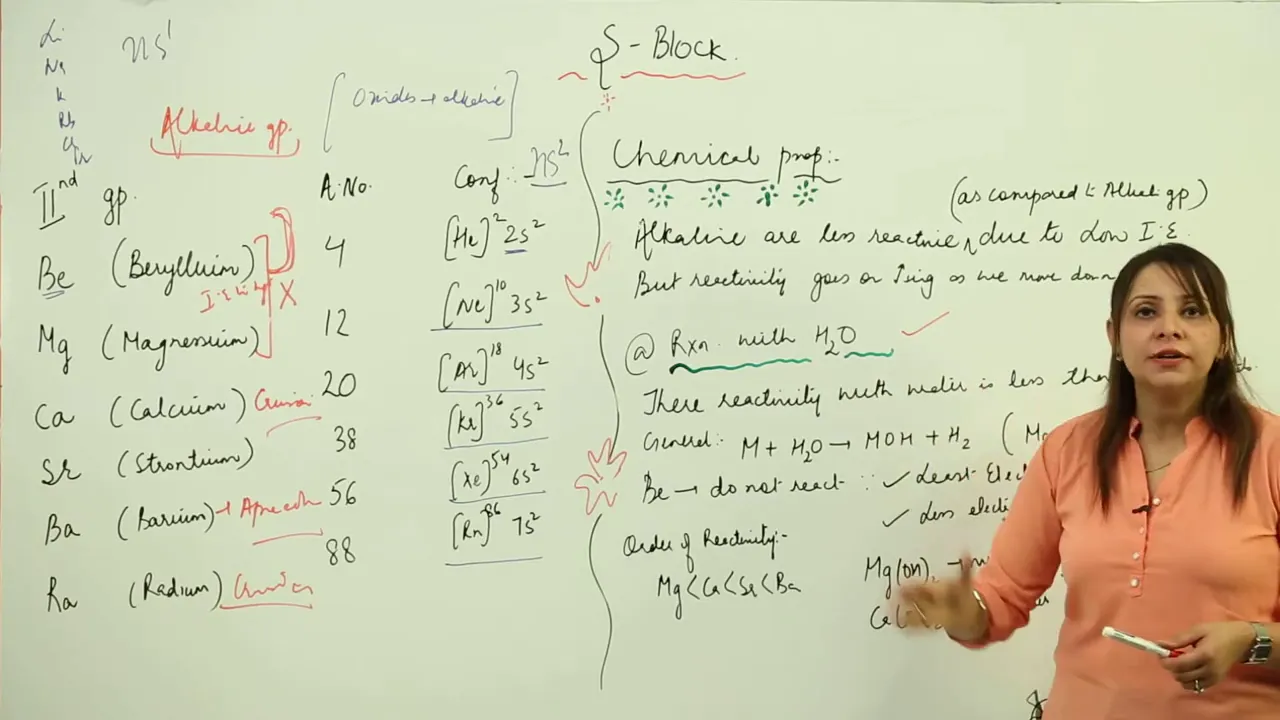 S - Block
Li
Na
K
Rb
nS¹
Alkaline gp.
[Oxides → alkaline]
IInd gp.
A. No.
Conf :- nS²
Be (Beryllium) 4 [He]² 2s²
X
Mg (Magnessium) 12 [Ne]¹⁰ 3s²
Ca (Calcium) 20 [Ar]¹⁸ 4s²
Sr (Strontium) 38 [Kr]³⁶ 5s²
Ba (Barium) → 56 [Xe]⁵⁴ 6s²
Ra (Radium) 88 [Rn]⁸⁶ 7s²
Chemical prop:-
(as compared to Alkali gp)
Alkaline are less reactive, due to Low I.E.
But reactivity goes on ↑ing as we move down
@ Rxn. with H₂O
There reactivity with water is less
General:- M + H₂O → MOH + H₂
Be → do not react ∵ ✓ Least
✓ Less
Order of Reactivity:-
Mg < Ca < Sr < Ba
Mg(OH)₂ →